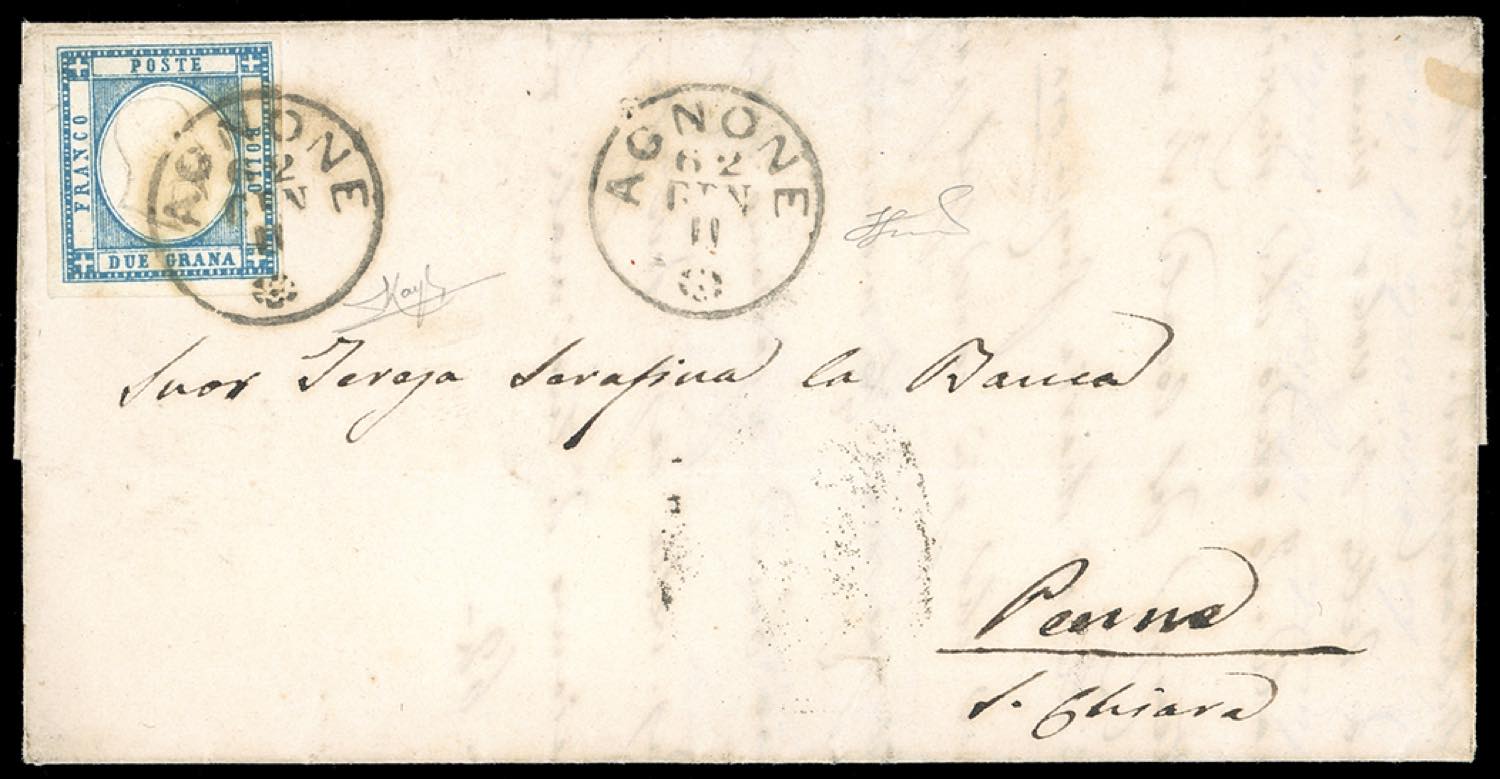 POSTE
FRANCO
BOLLO
DUE GRANA
AGNONE
62
GEN
11
AGNONE
62
GEN
11
Suor Teresa Serafina la Banca
Penne
S. Chiara